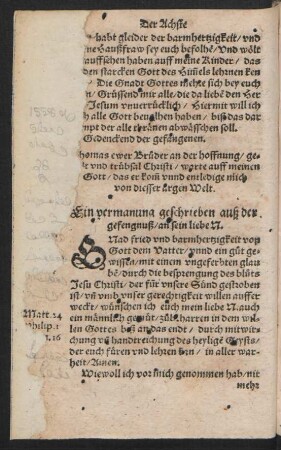 Der Achste
habt glieder der barmhertzigkeit / vnd
ne Haußfraw sey euch befolhē / Vnd wölt
auffsehen haben auff meine Kinder / das
den starcken Gott des Him̄els lehrnen ken
Die Gnadt Gottes rüchte sich bey euch
n / Grüssend mir alle / die da liebē den Her
Jesum vnuerrücklich / Hiermit will ich
h alle Gott beuolhen haben / biß das dar
mpt der alle thränen abwässchen soll.
Gedenckend der gefangenen.
homas ewer Brüder an der hoffnung / ge-
lt vnd trübsal Christi / warte auff meinen
Gott / das er kom̄ vnnd entledige mich
von diesser argen Welt.
Ein vermanung geschrieben auß der
gefengnuß / an sein liebe N.
GNad frid vnd barmhertzigkeit von
Gott dem Vatter / vnnd ein güt ge-
wissen / mit einem vngeferbten glau
bē / durch die besprengung des blüts
Jesu Christi / der für vnsere Sünd gestroben
ist / vn̄ vmb vnser gerechtigkeit willen auffer
weckt / wünschen ich euch mein liebe N. auch
ein männlich gemüt / züuerharren in dem wil-
len Gottes biß an das end / durch mitwir-
chung vn̄ handtreichung des heylige Geysts /
der euch füren vnd lehren kan / in aller war-
heit / Amen.
Matt. 24
Philip. 1
1.16
Wiewoll ich vor mich genommen hab / nit
mehr